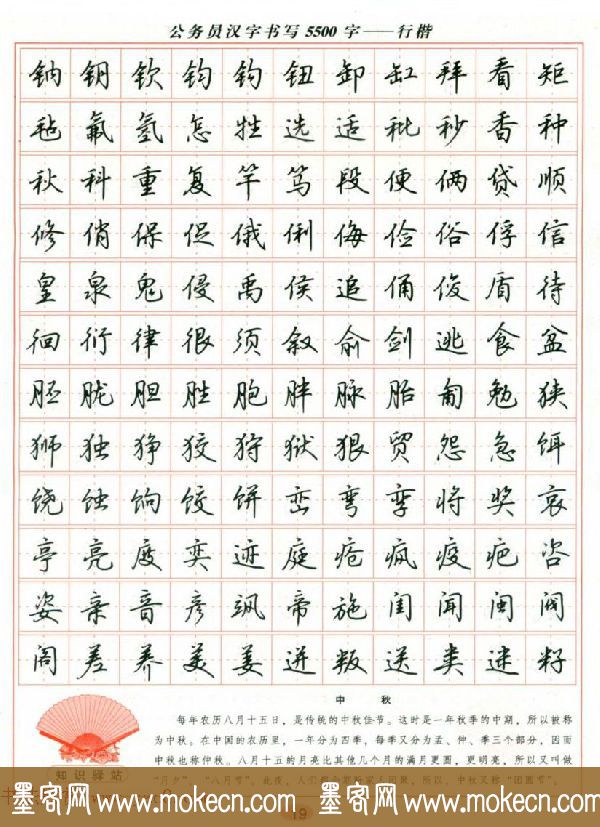 公务员汉字书写5500字——行楷
钠 钥 钦 钧 钩 钮 卸 缸 拜 看 矩
毡 氟 氢 怎 牲 选 适 秕 秒 香 种
秋 科 重 复 竿 笃 段 便 俩 贷 顺
修 俏 保 促 俄 俐 侮 俭 俗 俘 信
皇 泉 鬼 侵 禹 侯 追 俑 俊 盾 待
徊 衍 律 很 须 叙 俞 剑 逃 食 盆
胚 胧 胆 胜 胞 胖 脉 胎 匍 勉 狭
狮 独 狰 狡 狩 狱 狠 贸 怨 急 饵
饶 蚀 饷 饺 饼 峦 弯 孪 将 奖 哀
亭 亮 度 奕 迹 庭 疮 疯 疫 疤 咨
姿 亲 音 彦 飒 帝 施 闺 闻 闽 阀
阁 差 养 美 姜 迸 叛 送 类 迷 籽
中 秋
每年农历八月十五日，是传统的中秋佳节。这时是一年秋季的中期，所以被称
为中秋。在中国的农历里，一年分为四季，每季又分为孟、仲、季三个部分，因而
中秋也称仲秋。八月十五的月亮比其他几个月的满月更圆，更明亮，所以又叫做
知识驿站
墨客网 www.mokecn.com 墨客网 www.mokecn.com
19